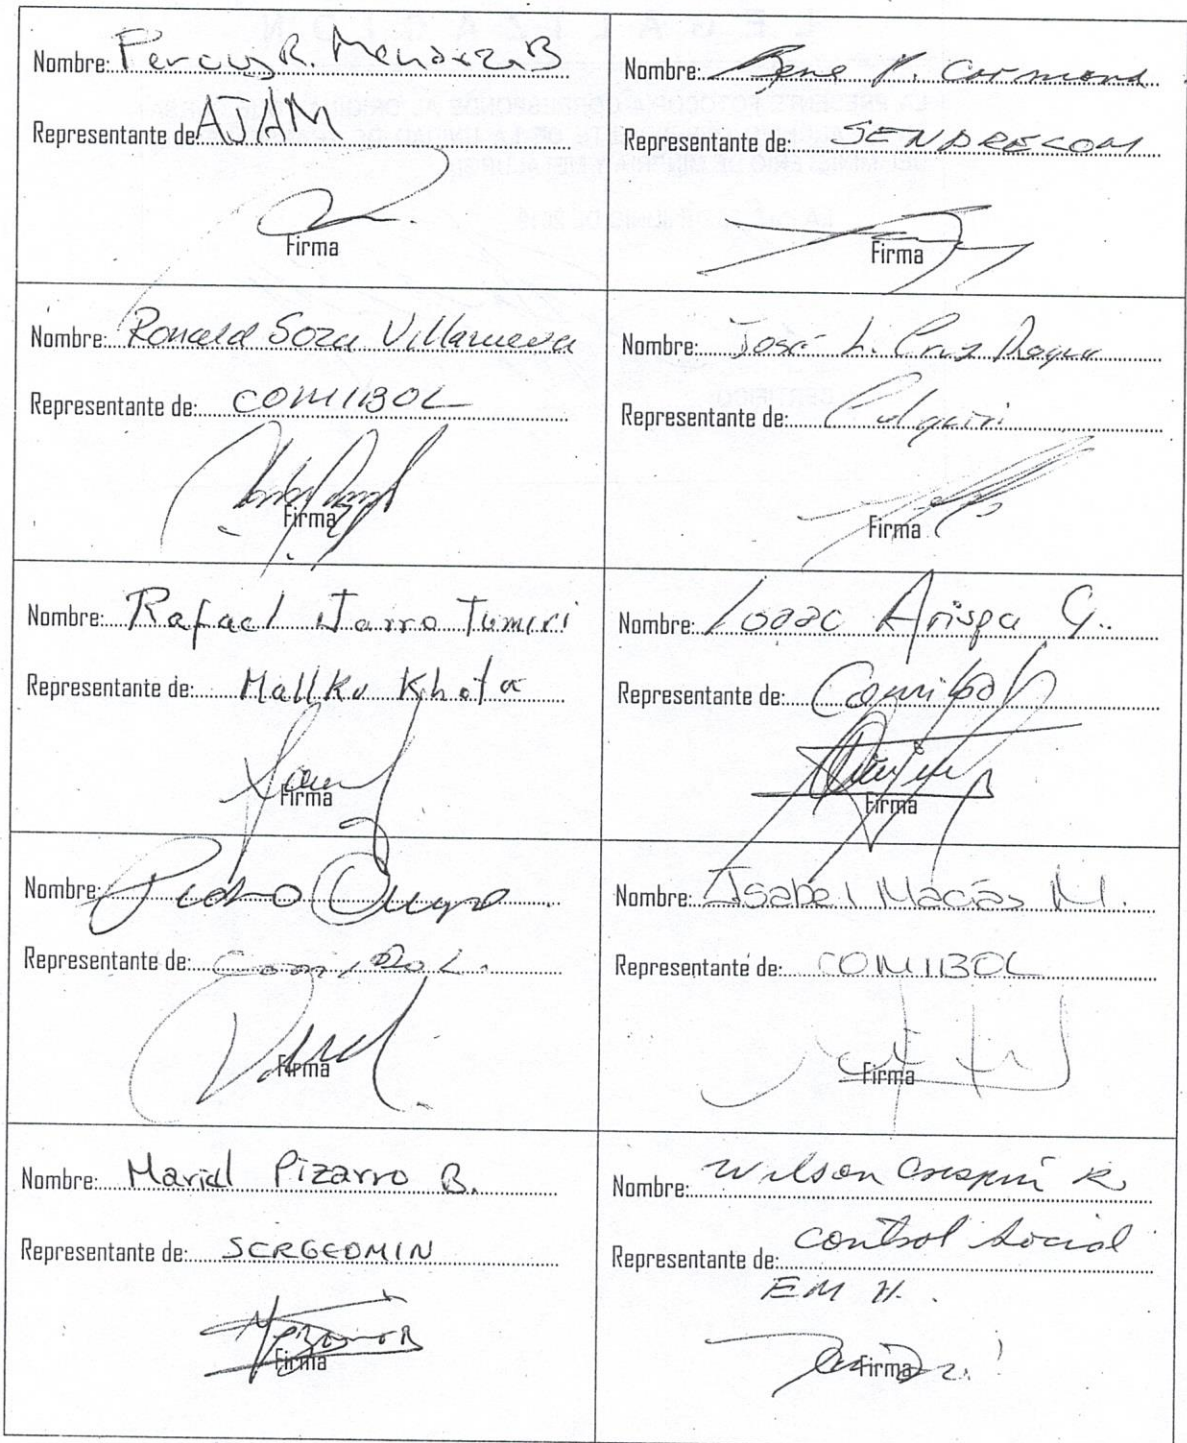 Nombre: Percy R. Mendoza B
Representante de: AJAM
Firma
Nombre: Rene V. Carmona
Representante de: SENARECOM
Firma
Nombre: Ronald Soza Villanueva
Representante de: COMIBOL
Firma
Nombre: José L. Cruz Roque
Representante de: Colquiri
Firma
Nombre: Rafael Jarro Tumiri
Representante de: Mallku Khota
Firma
Nombre: Isaac Arispa G.
Representante de: Comibol
Firma
Nombre: Pedro
Representante de: Comibol.
Firma
Nombre: Isabel Macías M.
Representante de: COMIBOL
Firma
Nombre: Mariel Pizarro B.
Representante de: SERGEOMIN
Firma
Nombre: Wilson Crespin R
Representante de: Control Social
EM H.
Firma